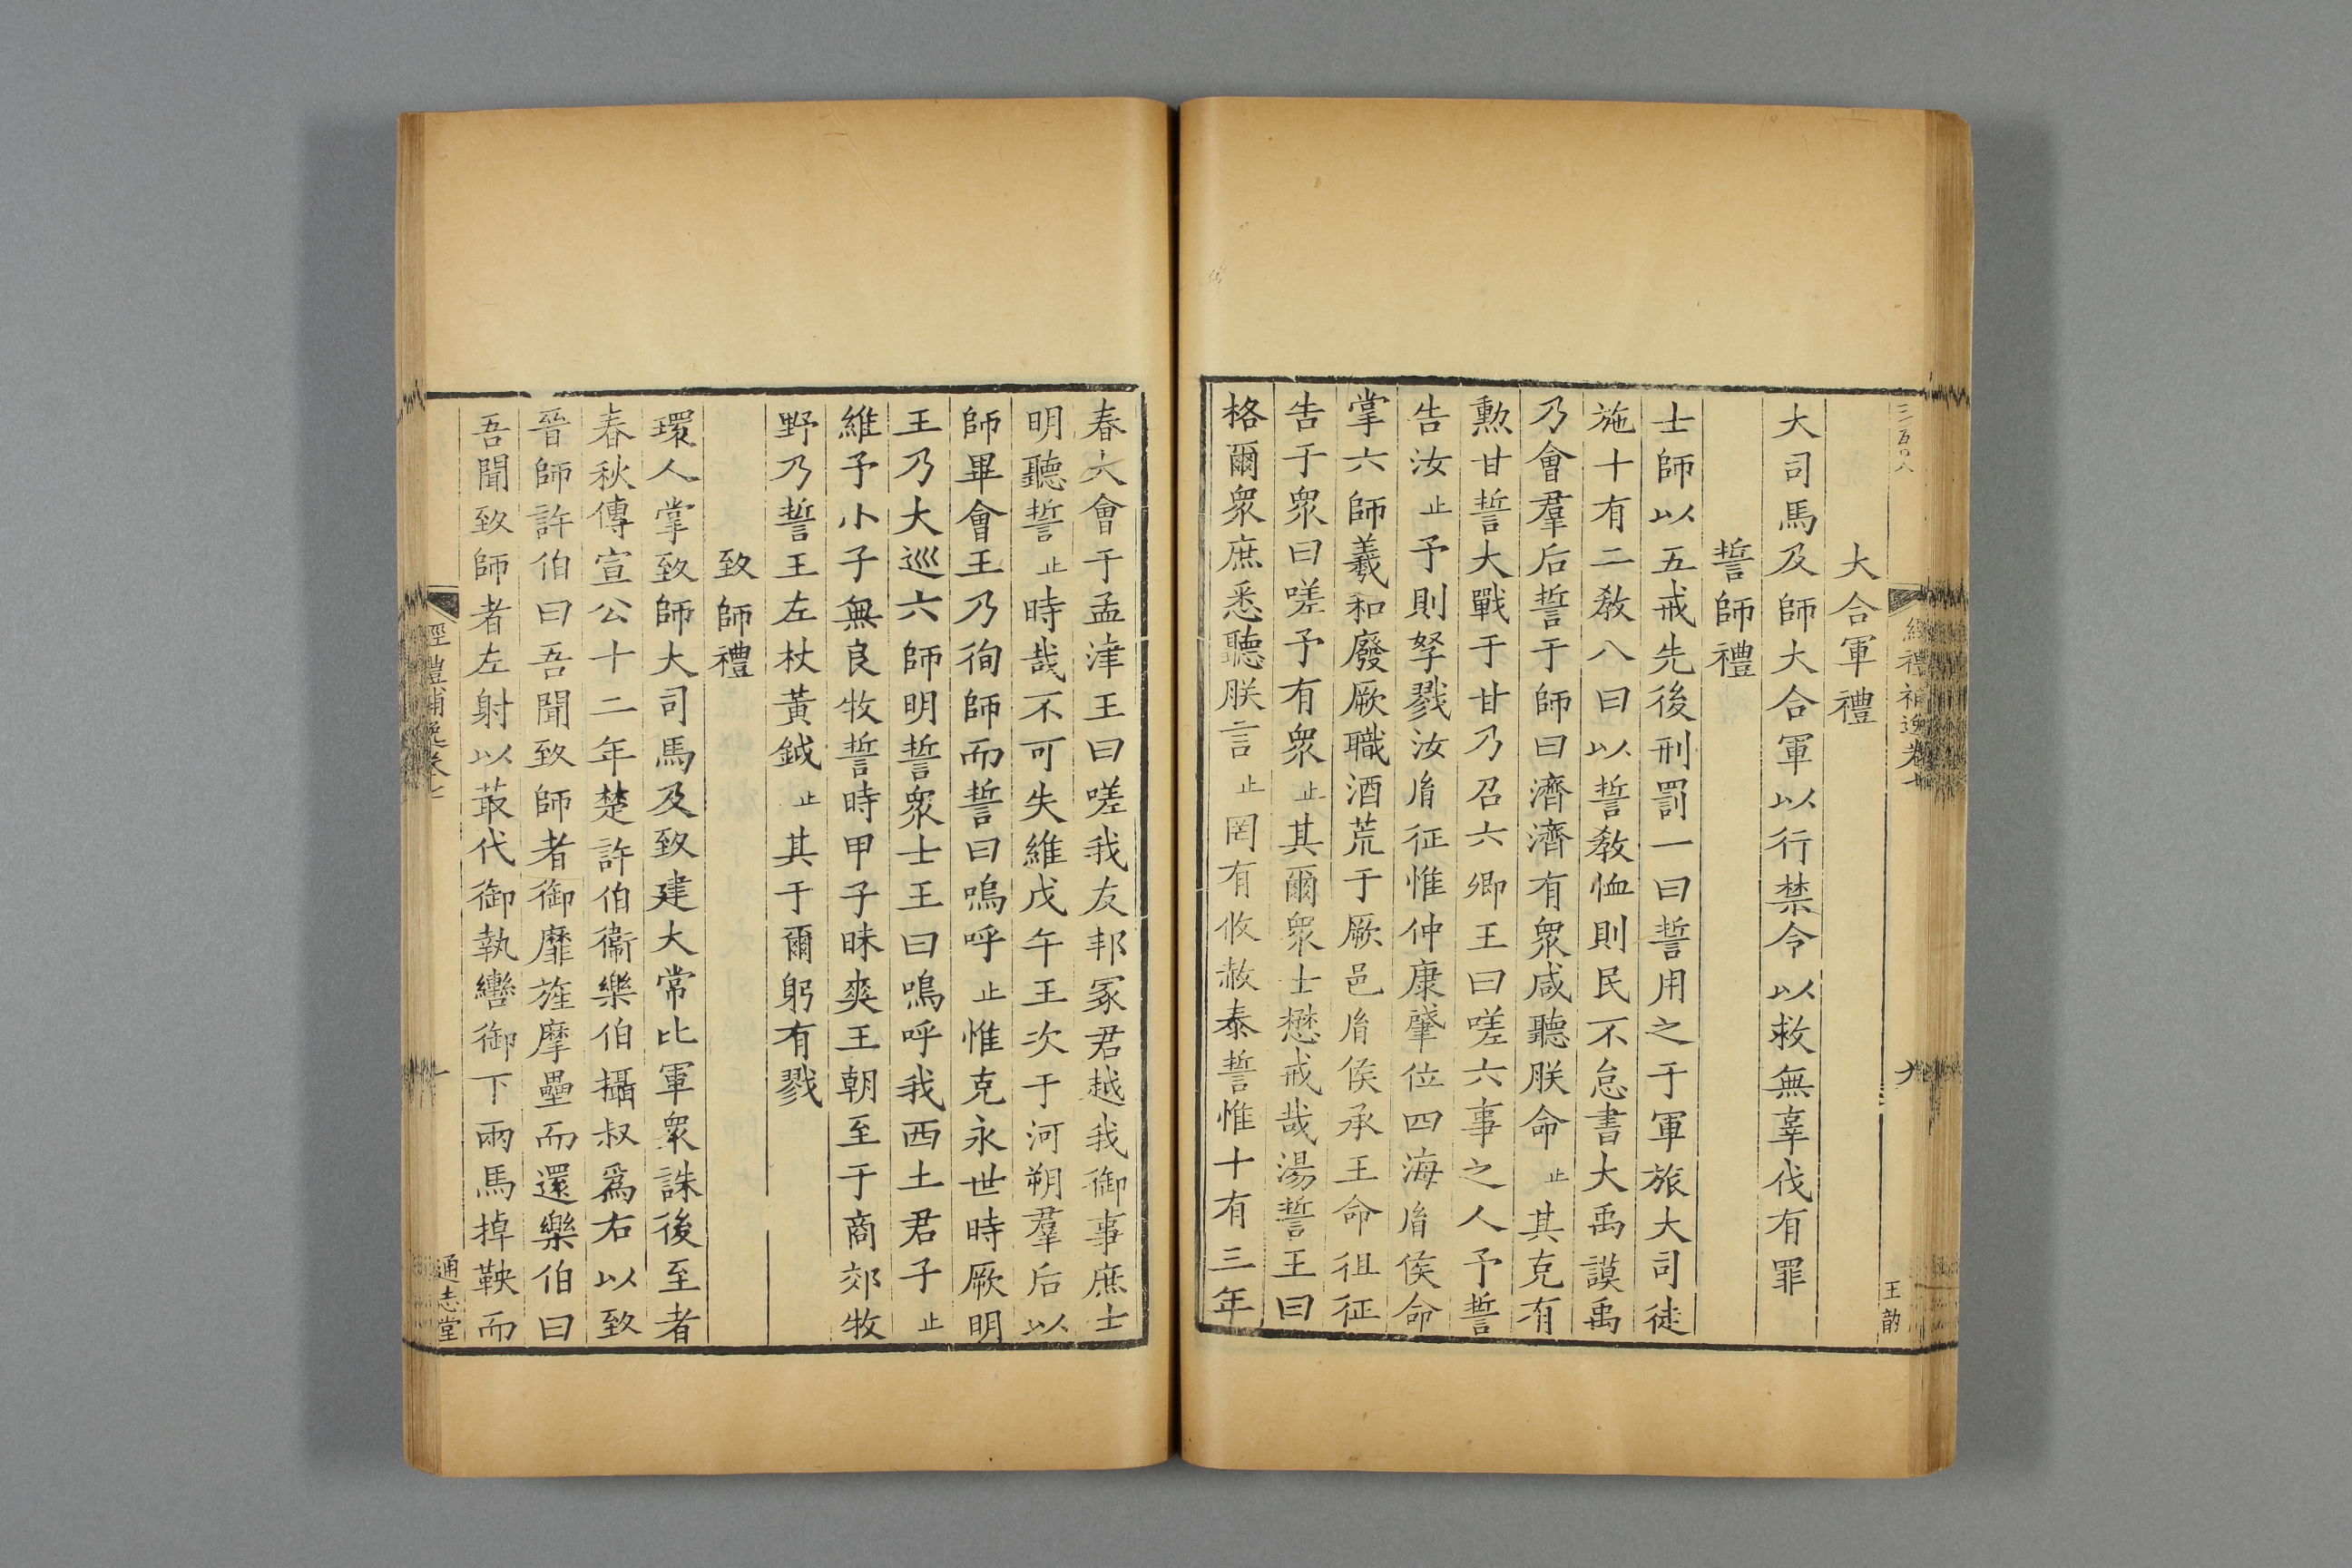 經禮補逸卷七
九
王
大合軍禮
大司馬及師大合軍以行禁令以救無辜伐有罪
誓師禮
士師以五戒先後刑罰一曰誓用之于軍旅大司徒
施十有二教八曰以誓教恤則民不怠書大禹謨禹
乃會羣后誓于師曰濟濟有衆咸聽朕命止其克有
勲甘誓大戰于甘乃召六卿王曰嗟六事之人予誓
告汝止予則孥戮汝胤征惟仲康肇位四海胤侯命
掌六師羲和廢厥職酒荒于厥邑胤侯承王命徂征
告于衆曰嗟予有衆止其爾衆士懋戒哉湯誓王曰
格爾衆庶悉聽朕言止罔有攸赦泰誓惟十有三年
春大會于孟津王曰嗟我友邦冢君越我御事庶士
明聽誓止時哉不可失維戊午王次于河朔羣后以
師畢會王乃徇師而誓曰嗚呼止惟克永世時厥明
王乃大巡六師明誓衆士王曰嗚呼我西土君子止
維予小子無良牧誓時甲子昧爽王朝至于商郊牧
野乃誓王左杖黃鉞止其于爾躬有戮
致師禮
環人掌致師大司馬及致建大常比軍衆誅後至者
春秋傳宣公十二年楚許伯衞樂伯攝叔爲右以致
晉師許伯曰吾聞致師者御靡旌摩壘而還樂伯曰
吾聞致師者左射以菆代御執轡御下兩馬掉鞅而
經禮補逸卷七
通志堂